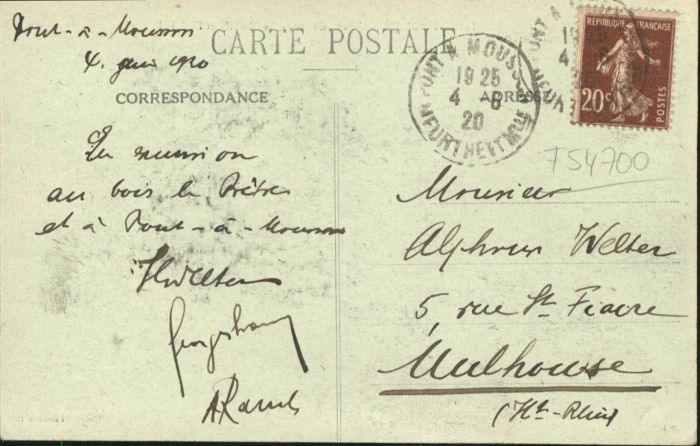 Pont-à-Mousson
4 juin 1920
CARTE POSTALE
CORRESPONDANCE
ADRESSE
En
au bois le Prêtre
et à Pont-à-Mousson
HWelter
PONT A MOUSSON
19 25
4 - 6
20
MEURTHE ET MOSELLE
REPUBLIQUE FRANÇAISE
20c
POSTES
754700
Monsieur
Alphonse Welter
5, rue St Fiacre
Mulhouse
(Ht-Rhin)